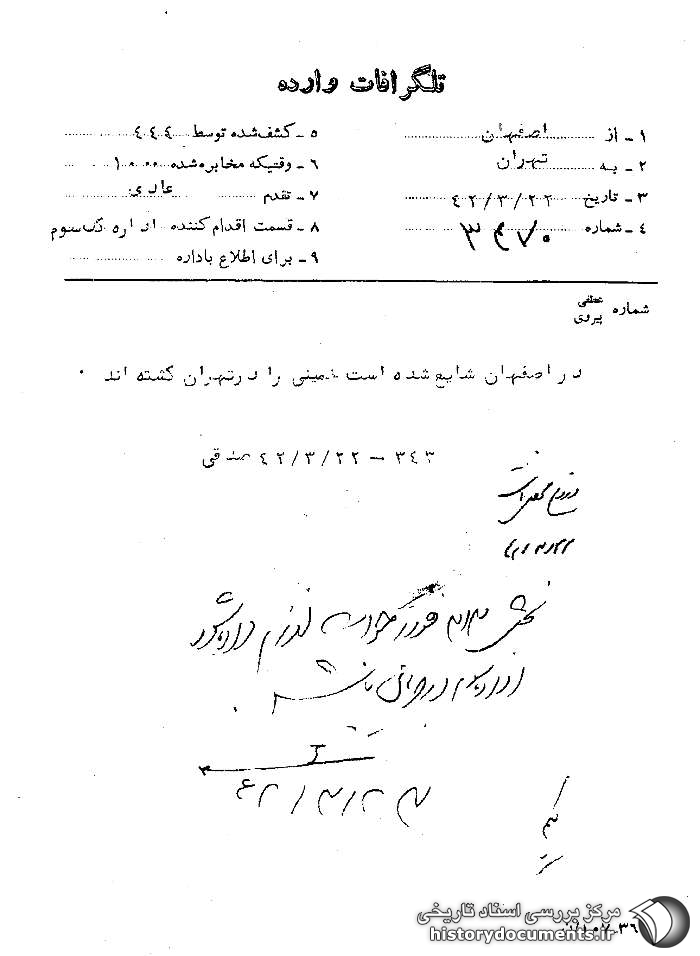 تلگرافات وارده
۱ - از اصفهان
۲ - به تهران
۳ - تاریخ ۴۲/۳/۲۲
۴ - شماره ۳۴۷۰
۵ - کشف شده توسط ۴۴۴
۶ - وقتیکه مخابره شده ۱۰۰۰
۷ - تقدم عادی
۸ - قسمت اقدام کننده اداره کل سوم
۹ - برای اطلاع باداره
شماره عطفی
پیروی
در اصفهان شایع شده است خمینی را در تهران کشته اند ۰
۳۴۳ - ۴۲/۳/۲۲ صدقی
۴۲/۳/۲۲
بخش ۳۱۲ فوراً
اداره سوم در جریان باشد
۴۲/۳/۲۳
مرکز بررسی اسناد تاریخی
historydocuments.ir